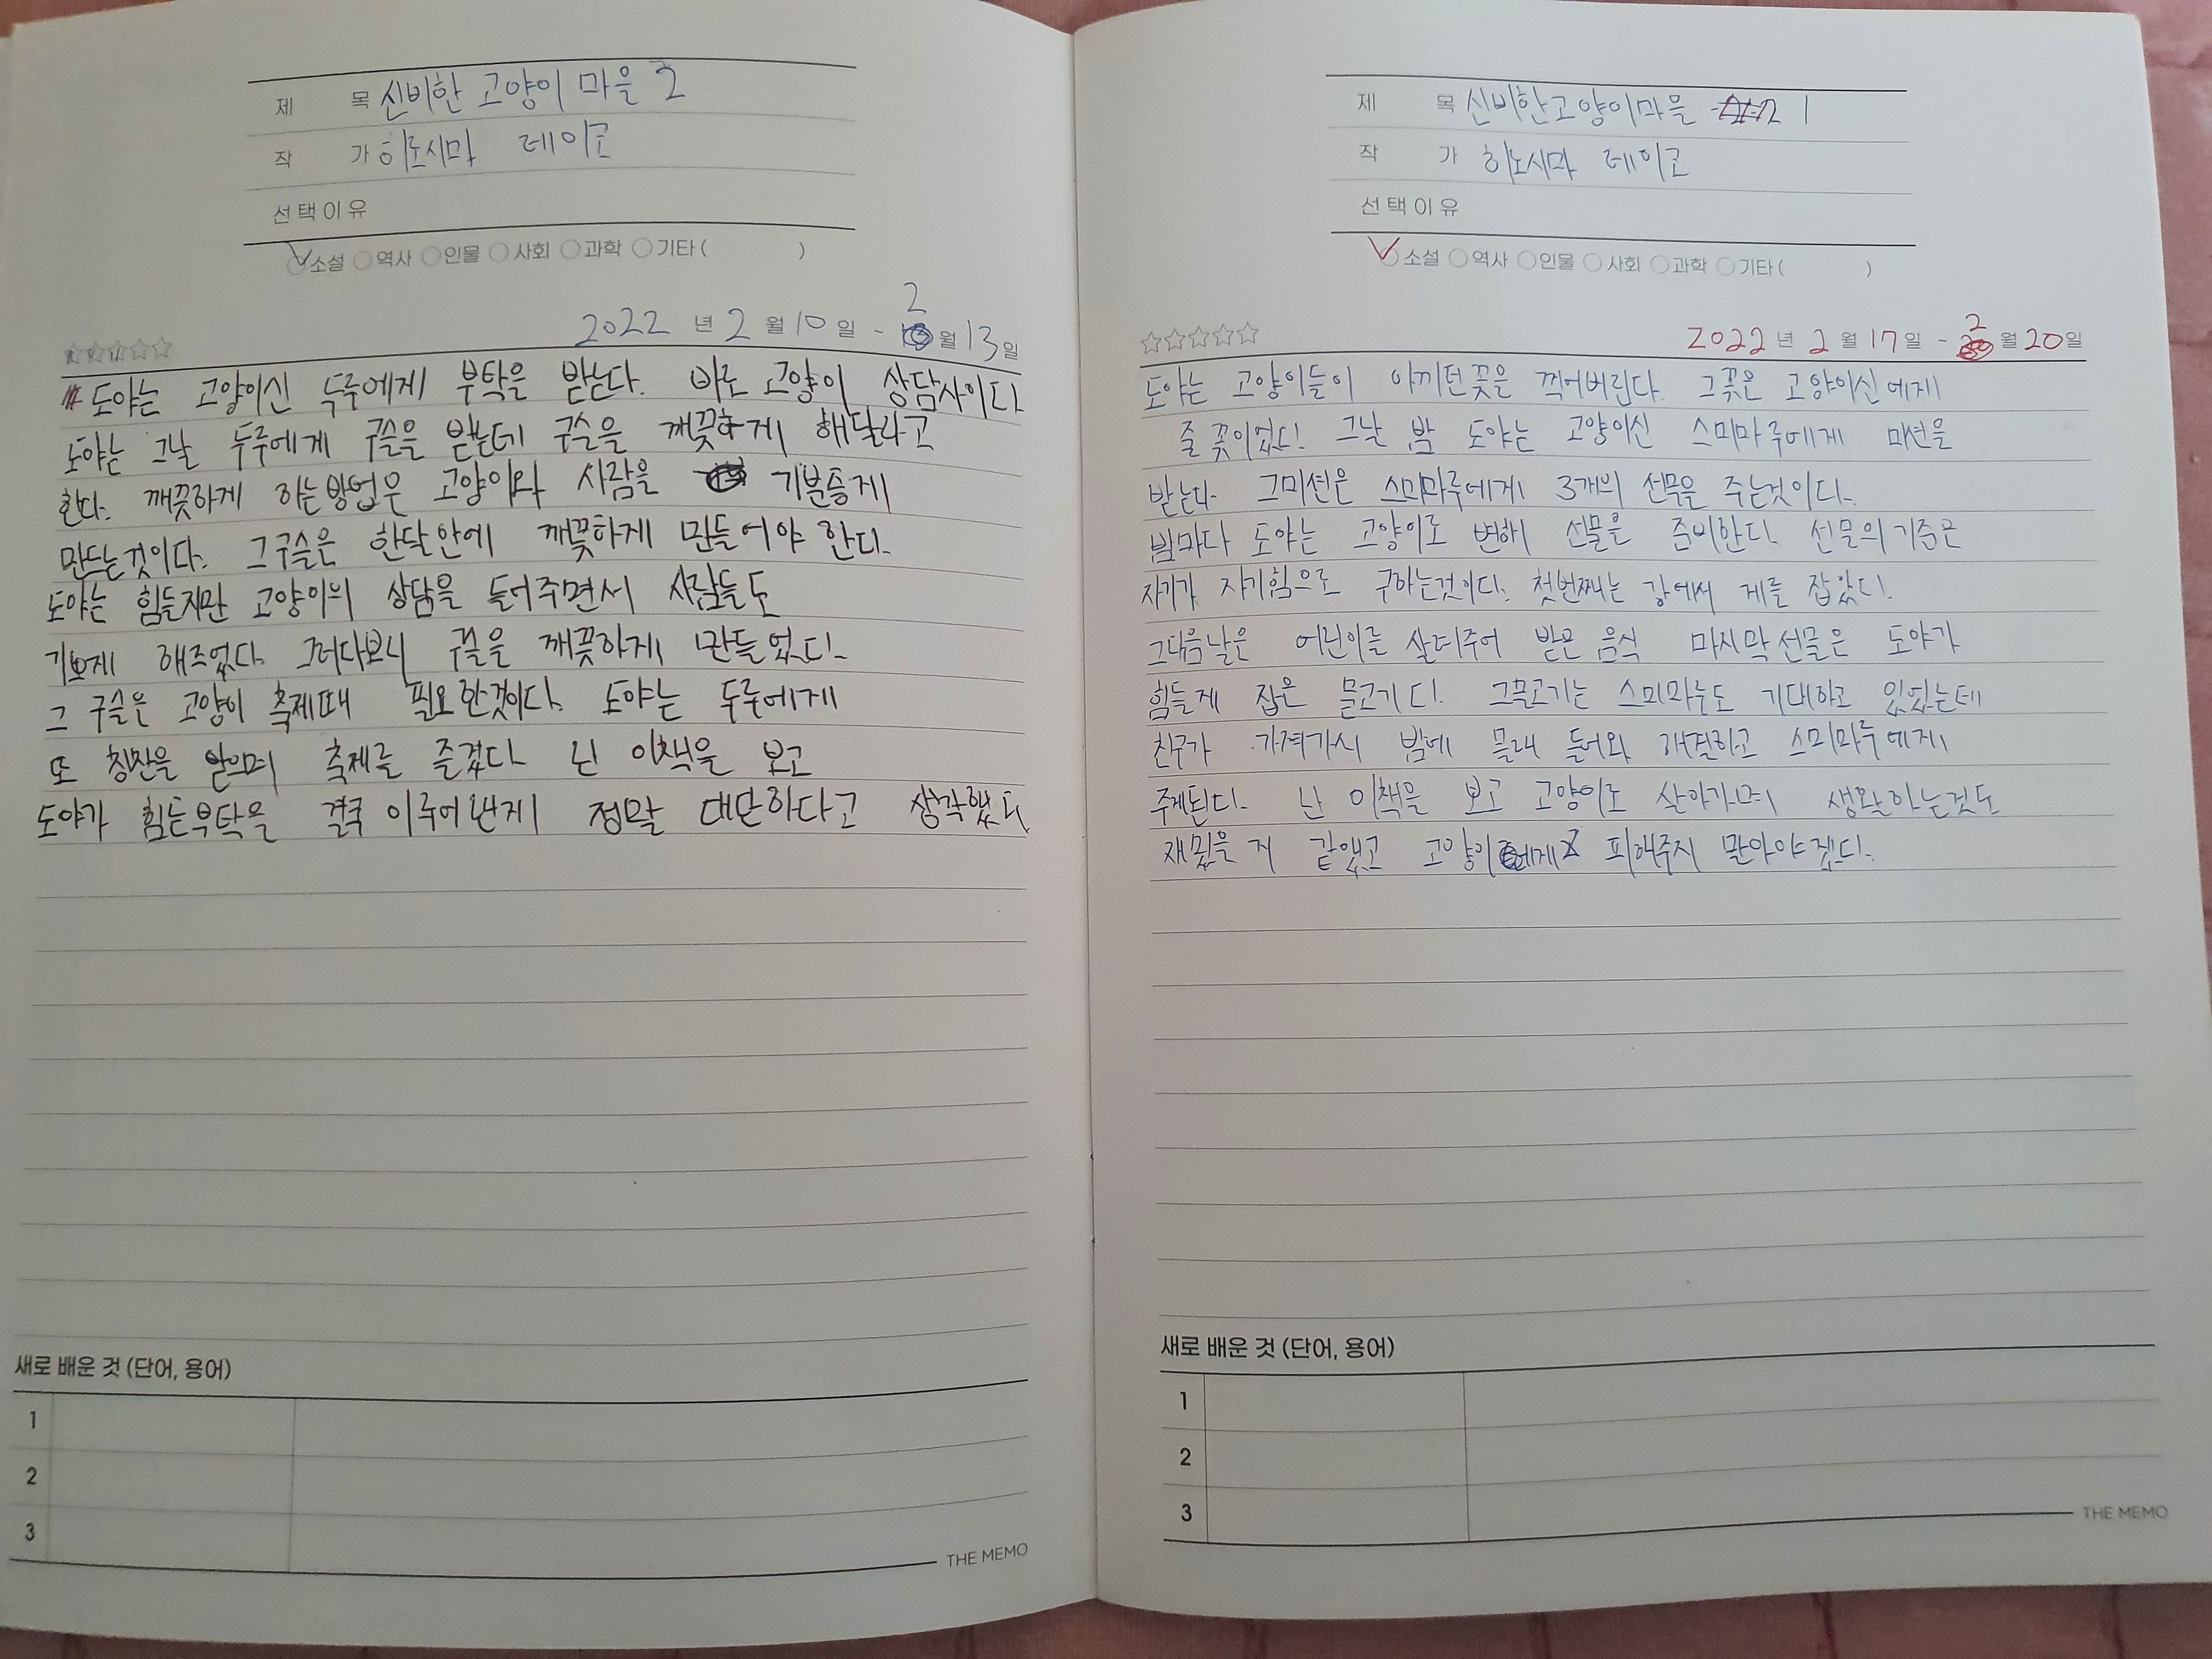 제 목 신비한 고양이 마을 2
작 가 히로시마 레이코
선 택 이 유
소설 역사 인물 사회 과학 기타 ( )
2022 년 2 월 10 일 ~ 2 월 13 일
도야는 고양이신 두루에게 부탁을 받는다. 이른 고양이 상담사이다
도야는 그날 두루에게 구슬을 받는데 구슬을 깨끗하게 해달라고
한다. 깨끗하게 하는방법은 고양이와 사람을 기분좋게
만드는것이다. 그 구슬을 한달안에 깨끗하게 만들어야 한다.
도야는 힘들지만 고양이의 상담을 들어주면서 사람들도
기쁘게 해주었다. 그러다보니 구슬을 깨끗하게 만들었다.
그 구슬은 고양이 축제때 필요한것이다. 도야는 두루에게
또 칭찬을 받으며 축제를 즐겼다 난 이책을 보고
도야가 힘든부탁을 결국 이루어낸게 정말 대단하다고 생각했다
새로 배운 것 (단어, 용어)
1
2
3
THE MEMO
제 목 신비한고양이마을 1
작 가 히로시마 레이코
선 택 이 유
소설 역사 인물 사회 과학 기타 ( )
2022 년 2 월 17 일 ~ 2 월 20 일
도야는 고양이들이 아끼던꽃을 꺾어버린다. 그꽃은 고양이신에게
줄 꽃이었는! 그날 밤 도야는 고양이신 스미마루에게 미션을
받는다. 그미션은 스미마루에게 3개의 선물을 주는것이다.
밤마다 도야는 고양이로 변해 선물을 준비한다. 선물의기준은
자기가 자기힘으로 구하는것이다. 첫번째는 강에서 게를 잡았다.
그다음날은 어린이를 살려주어 받은 음식 마지막선물은 도야가
힘들게 잡은 물고기다. 그물고기는 스미마루도 기대하고 있었는데
친구가 가져가서 밤에 몰래 들어와 가져오고 스미마루에게
주게된다. 난 이책을 보고 고양이로 살아가며 생활하는것도
재밌을 거 같았고 고양이에게 피해주지 말아야겠다.
새로 배운 것 (단어, 용어)
1
2
3
THE MEMO